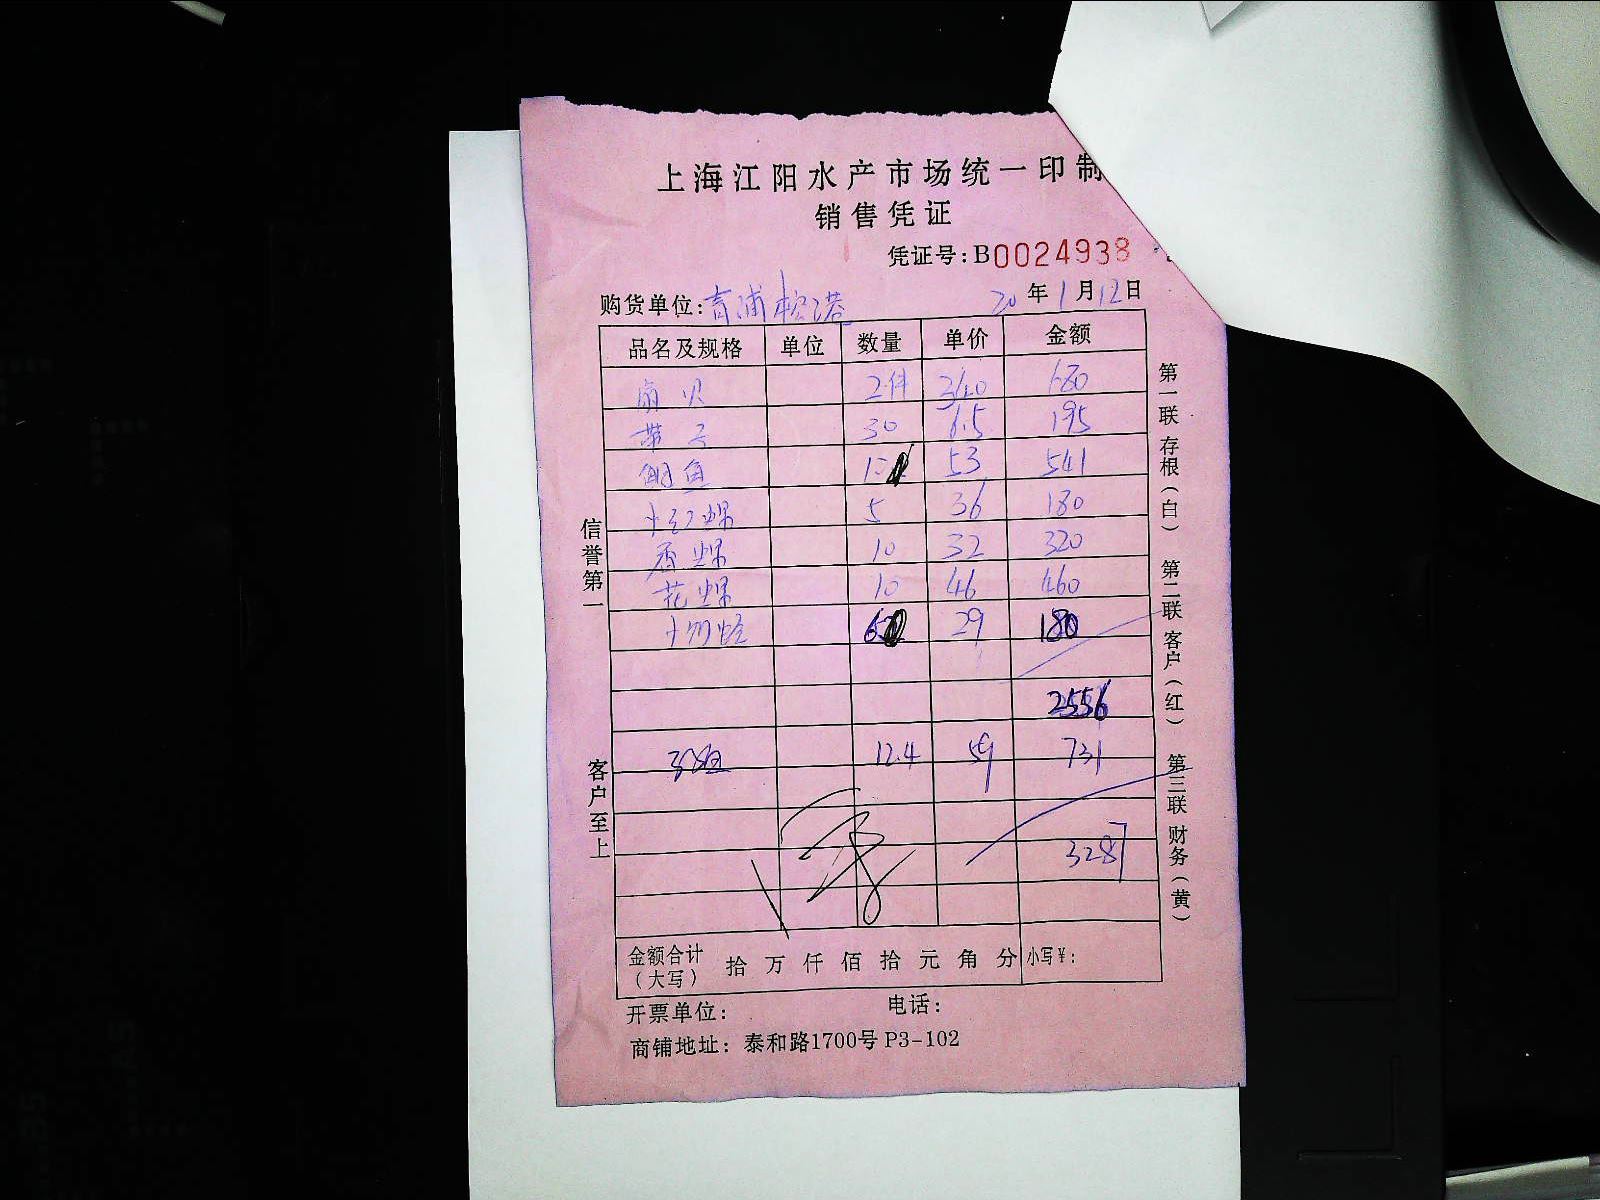 上海江阳水产市场统一印制
销售凭证
凭证号:B0024938
购货单位:青浦松港 20 年 1 月 12 日
品名及规格 单位 数量 单价 金额
扇贝 2件 340 680
带子 30 6.5 195
鲷鱼 53 541
小红螺 5 36 180
香螺 10 32 320
花螺 10 46 460
29 180
2556
12.4 59 731
3287
金额合计(大写) 拾 万 仟 佰 拾 元 角 分 小写¥:
开票单位: 电话:
商铺地址: 泰和路1700号 P3-102
信誉第一
客户至上
第一联 存根(白) 第二联 客户(红) 第三联 财务(黄)